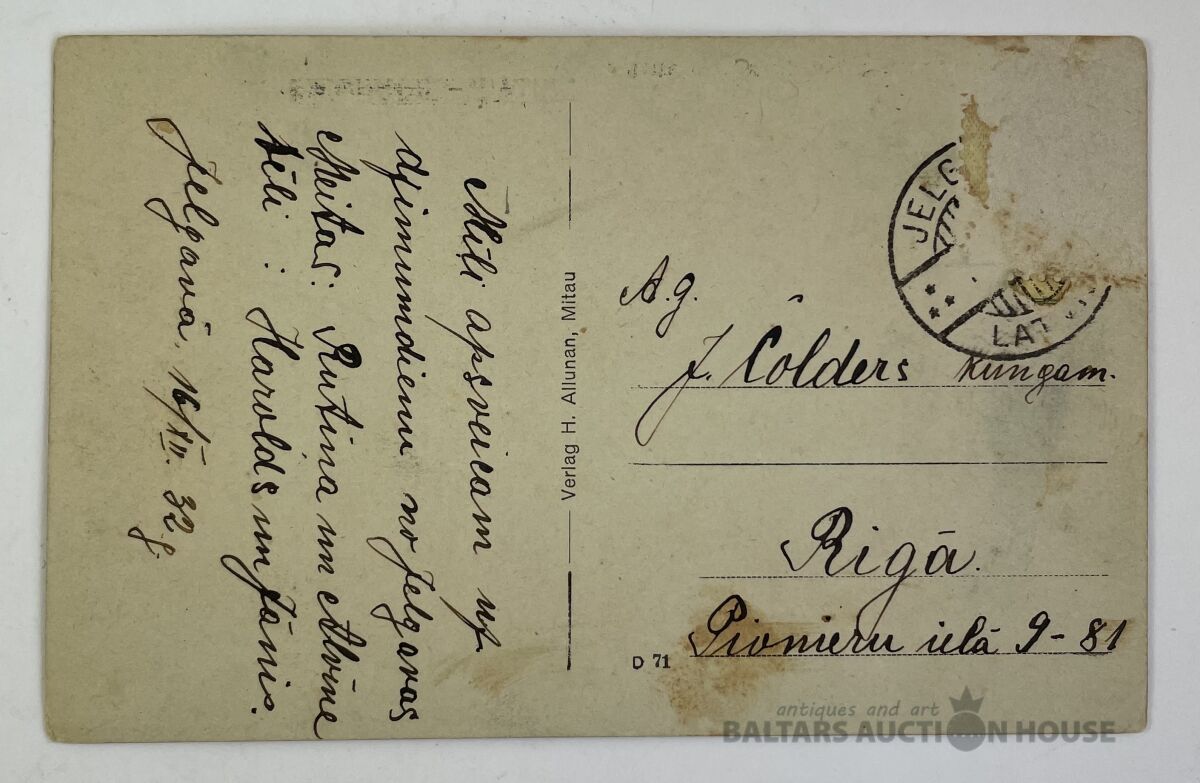 Mīļi apsveicam uz
dzimumdienu no Jelgavas
Meitas: Rutiņa un Alvine
tēli: Harolds un Jānis.
Jelgavā, 16/XII. 32 g.
Verlag H. Allunan, Mitau
JELG
LATV
A.g.
J. Colders kungam.
Rigā.
Pionieru ielā 9-81
D 71
antiques and art
BALTARS AUCTION HOUSE